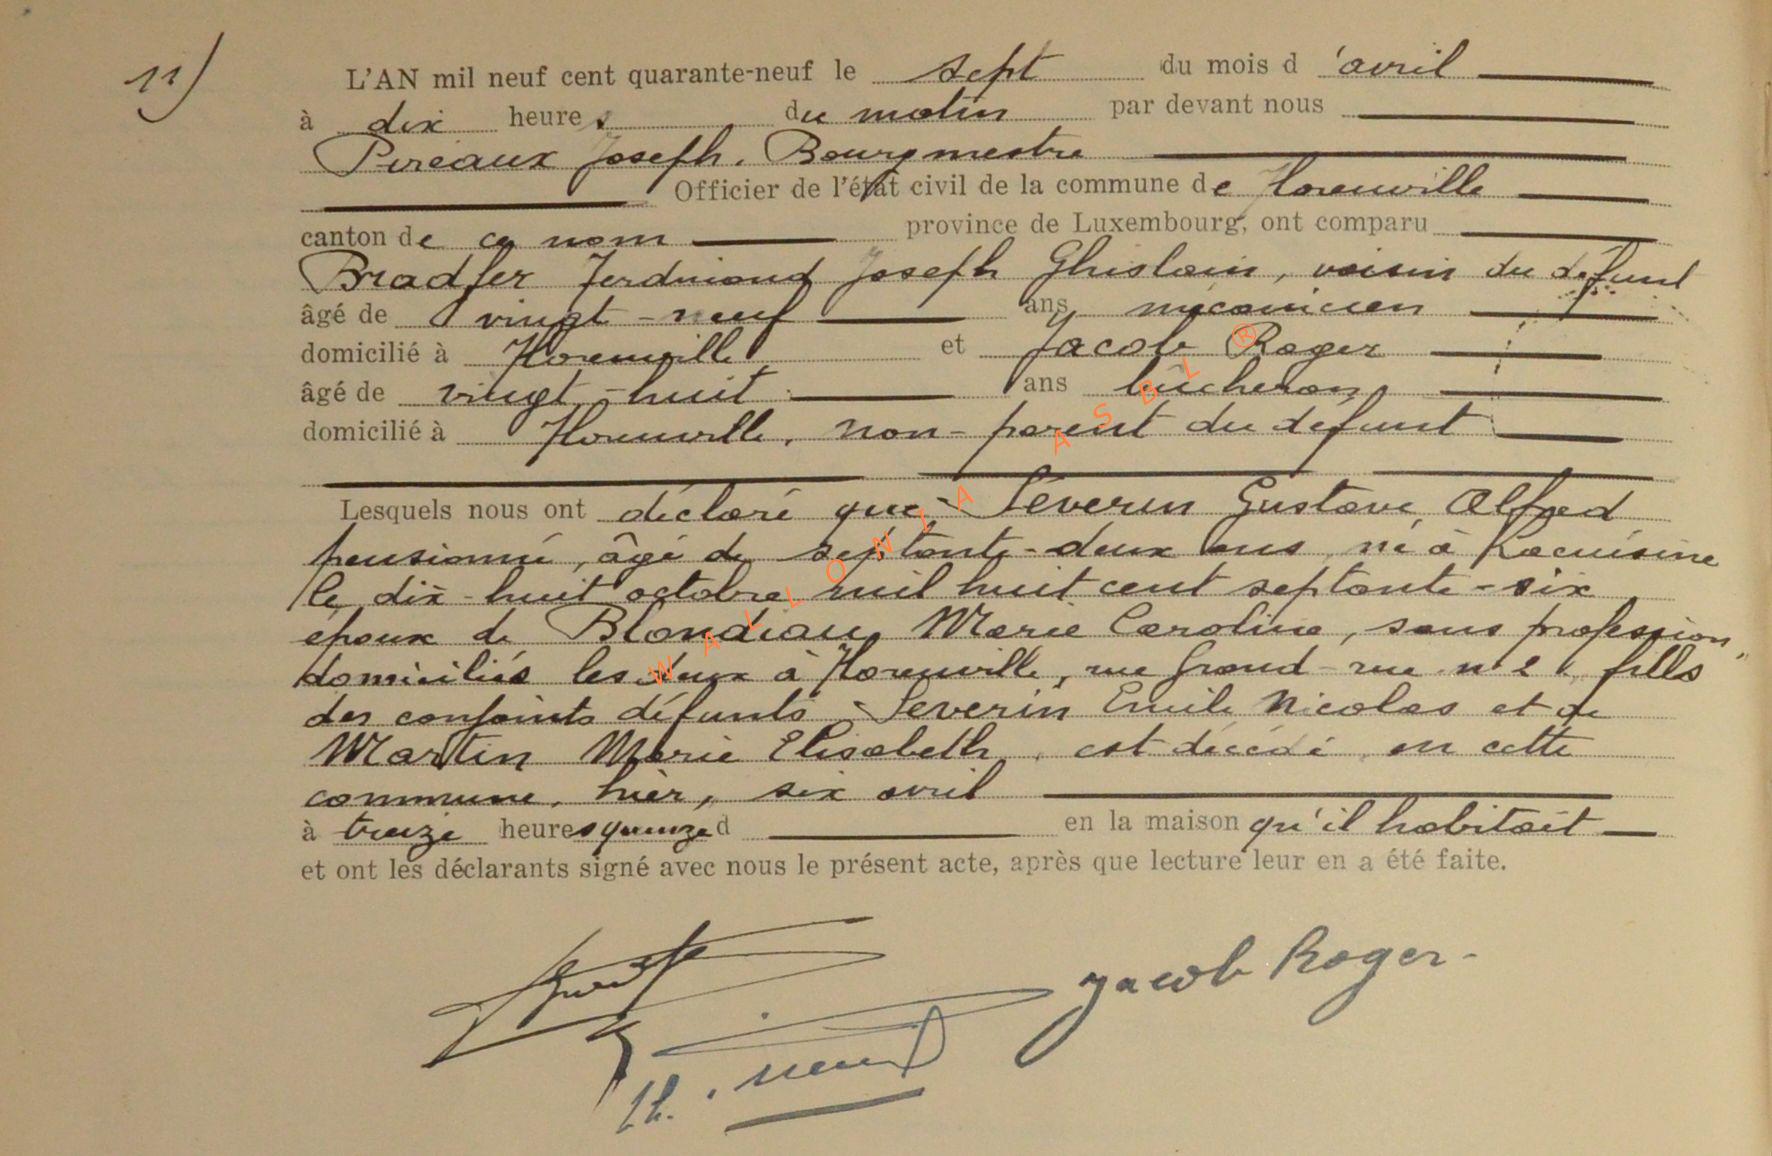 11)
L'AN mil neuf cent quarante-neuf le sept du mois d'avril
à dix heures du matin par devant nous
Pireaux Joseph. Bourgmestre
Officier de l'état civil de la commune de Florenville
canton de ce nom province de Luxembourg, ont comparu
Bradfer Ferdinand Joseph Ghislain, voisin du défunt
âgé de vingt-neuf ans mécanicien
domicilié à Florenville et Jacob Roger
âgé de vingt-huit ans bûcheron,
domicilié à Florenville, non-parent du défunt
Lesquels nous ont déclaré que Séverin Gustave Alfred
pensionné, âgé de septante-deux ans, né à Lacuisine
le dix-huit octobre mil huit cent septante-six
époux de Blondiau Marie Caroline, sans profession
domiciliés les deux à Florenville, rue Grand-rue n° 2, fils
des conjoints défunts Séverin Emile Nicolas et de
Martin Marie Elisabeth, est décédé en cette
commune, hier, six avril
à treize heures quinze d en la maison qu'il habitait
et ont les déclarants signé avec nous le présent acte, après que lecture leur en a été faite.
Jacob Roger.
WALLONIA ASBL ®